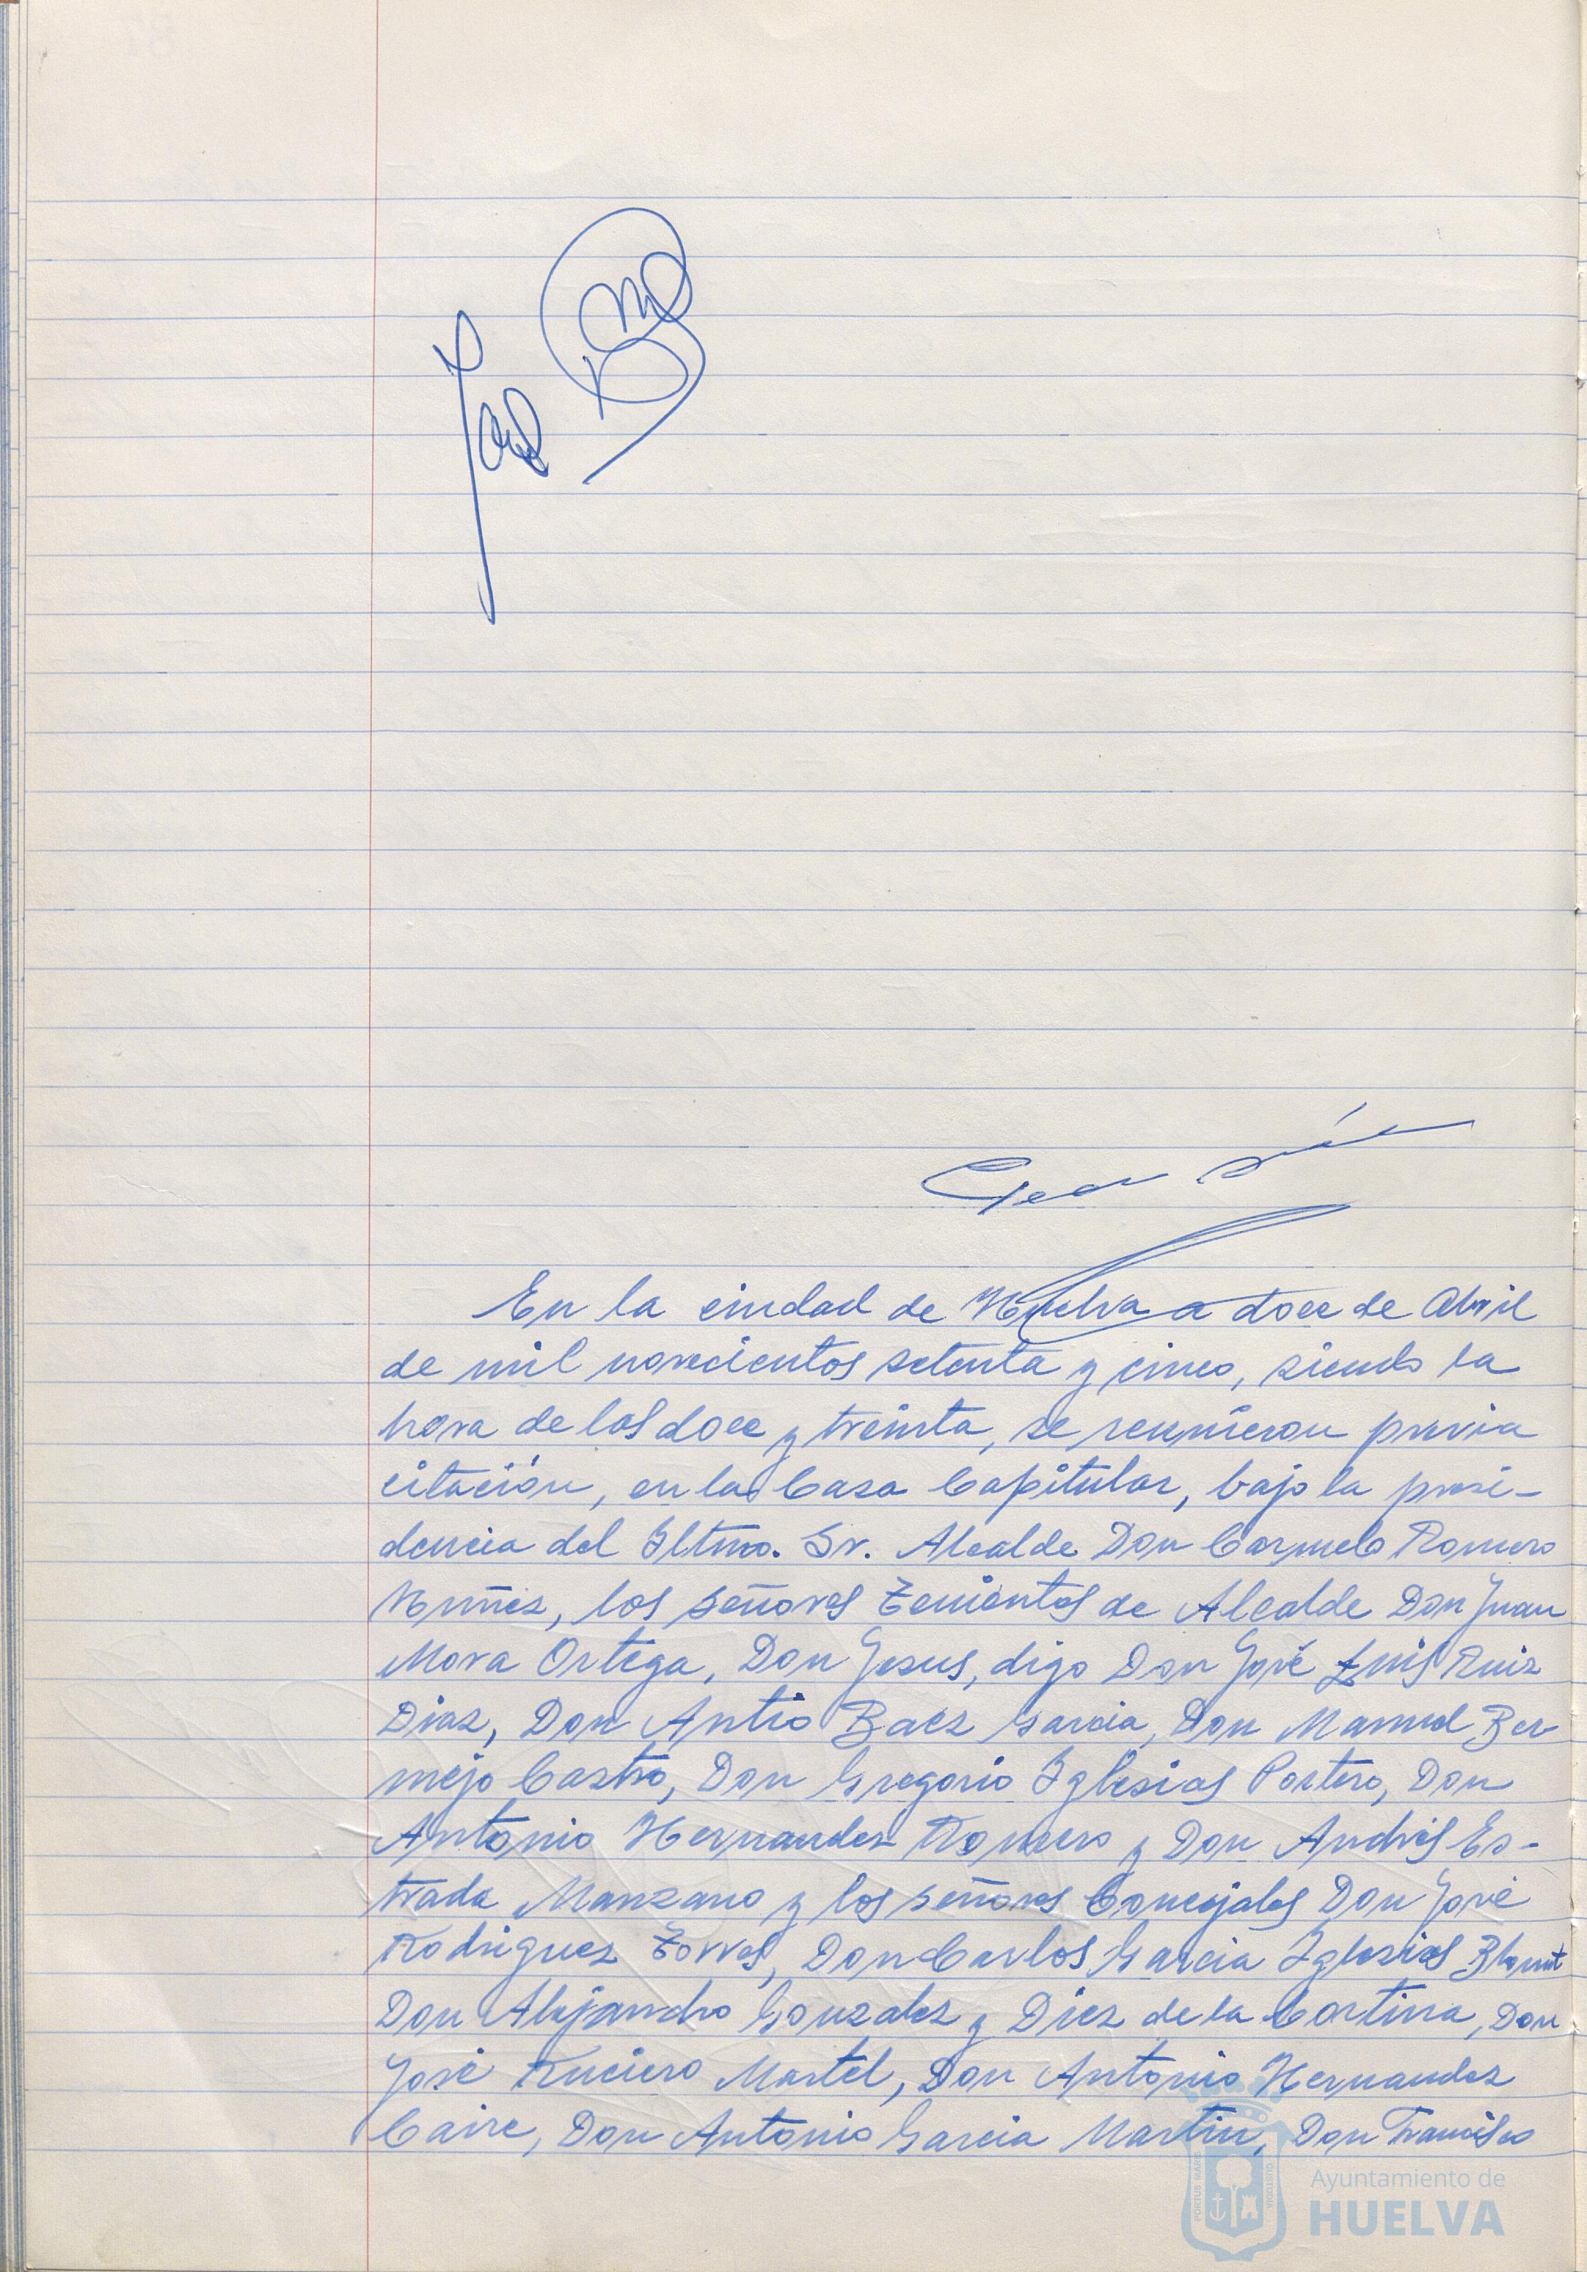 José
En la ciudad de Huelva a doce de Abril
de mil novecientos setenta y cinco, siendo la
hora de las doce y treinta, se reunieron previa
citación, en la Casa Capitular, bajo la presi-
dencia del Iltmo. Sr. Alcalde Don Carmelo Romero
Nuñez, los señores Tenientes de Alcalde Don Juan
Mora Ortega, Don Jesus, digo Don José Luis Ruiz
Diaz, Don Antio Baez Garcia, Don Manuel Ber
mejo Castro, Don Gregorio Iglesias Portero, Don
Antonio Hernandez Romero y Don Andrés Es-
trada Manzano y los señores Concejales Don José
Rodriguez Torres, Don Carlos Garcia Iglesias
Don Alejandro Gonzalez y Diez de la Cortina, Don
José Ruciero Martel, Don Antonio Hernandez
Caire, Don Antonio Garcia Martin, Don Francisco
PORTUS MARIS CUSTODIA
Ayuntamiento de
HUELVA